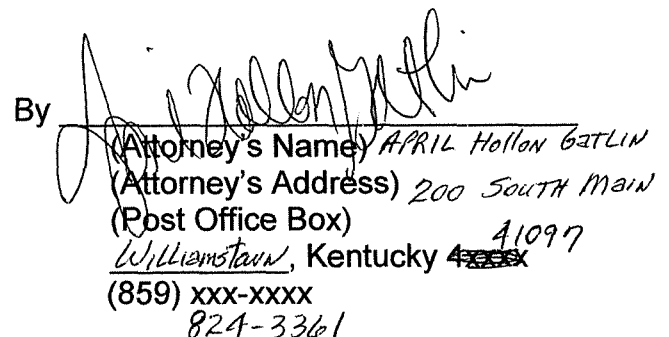 By April Hollon Gatlin
(Attorney's Name) APRIL Hollon GATLIN
(Attorney's Address) 200 SOUTH Main
(Post Office Box)
Williamstown, Kentucky 4xxxx 41097
(859) xxx-xxxx
824-3361